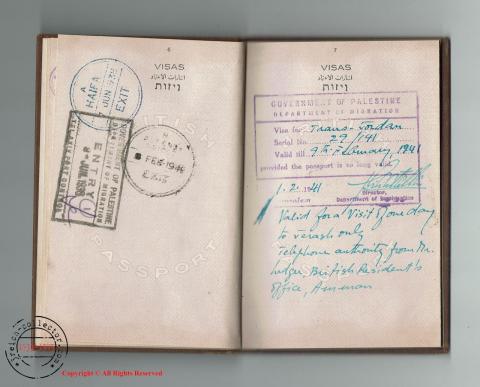 6
VISAS
ויזות
A
HAIFA
JUN 1939
EXIT
GOVERNMENT OF PALESTINE
DEPARTMENT OF MIGRATION
ENTRY
FEB 1940
EXIT
BRITISH
PASSPORT
7
VISAS
ויזות
GOVERNMENT OF PALESTINE
DEPARTMENT OF MIGRATION
Visa for Trans-Jordan
Serial No. 29/141
Valid till 9th February, 1941
provided the passport is so long valid.
1.2.41
Director,
Department of Migration
Valid for a visit of one day
to Jerash only
Telephone authority from Mr.
British Resident's
office, Amman
ireich-collector.com
Copyright © All Rights Reserved